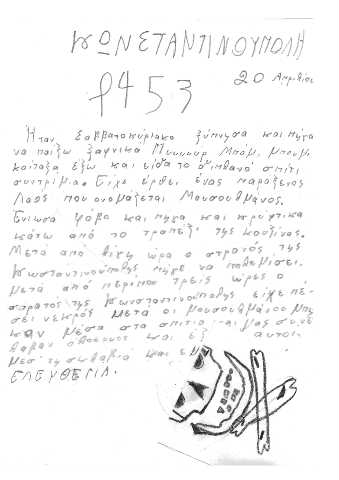 ΚΩΝΣΤΑΝΤΙΝΟΥΠΟΛΗ
1453
20 Απριλιου
Ήταν Σαββατοκύριακο ξύπνησα και πήγα
να παίξω ξαφνικά Μπουμ, μπουμ
κοίταξα έξω και είδα το σπίτι
συντρίμια. Είχε έρθει ένας παράξενος
λαος που ονομάζεται Μουσουλμάνος.
Ένιωσα φόβο και πήγα και κρύφτικα
κάτω από το τραπέζι της κουζίνας.
Μετά από λίγη ώρα ο στρατός της
Κωνσταντινούπολης πήγε να πολεμίσει.
μετά από περίπου τρείς ώρες ο
στρατός της Κωνσταντινούπολης είχε πέ-
σει νεκρός μετα οι μουσουλμάνοι μπή
καν μέσα στα σπίτια και μας συνέ
λαβαν και εξ αυτοι.
μεσ' τη σκλαβιά και
ΕΛΕΥΘΕΡΙΑ.